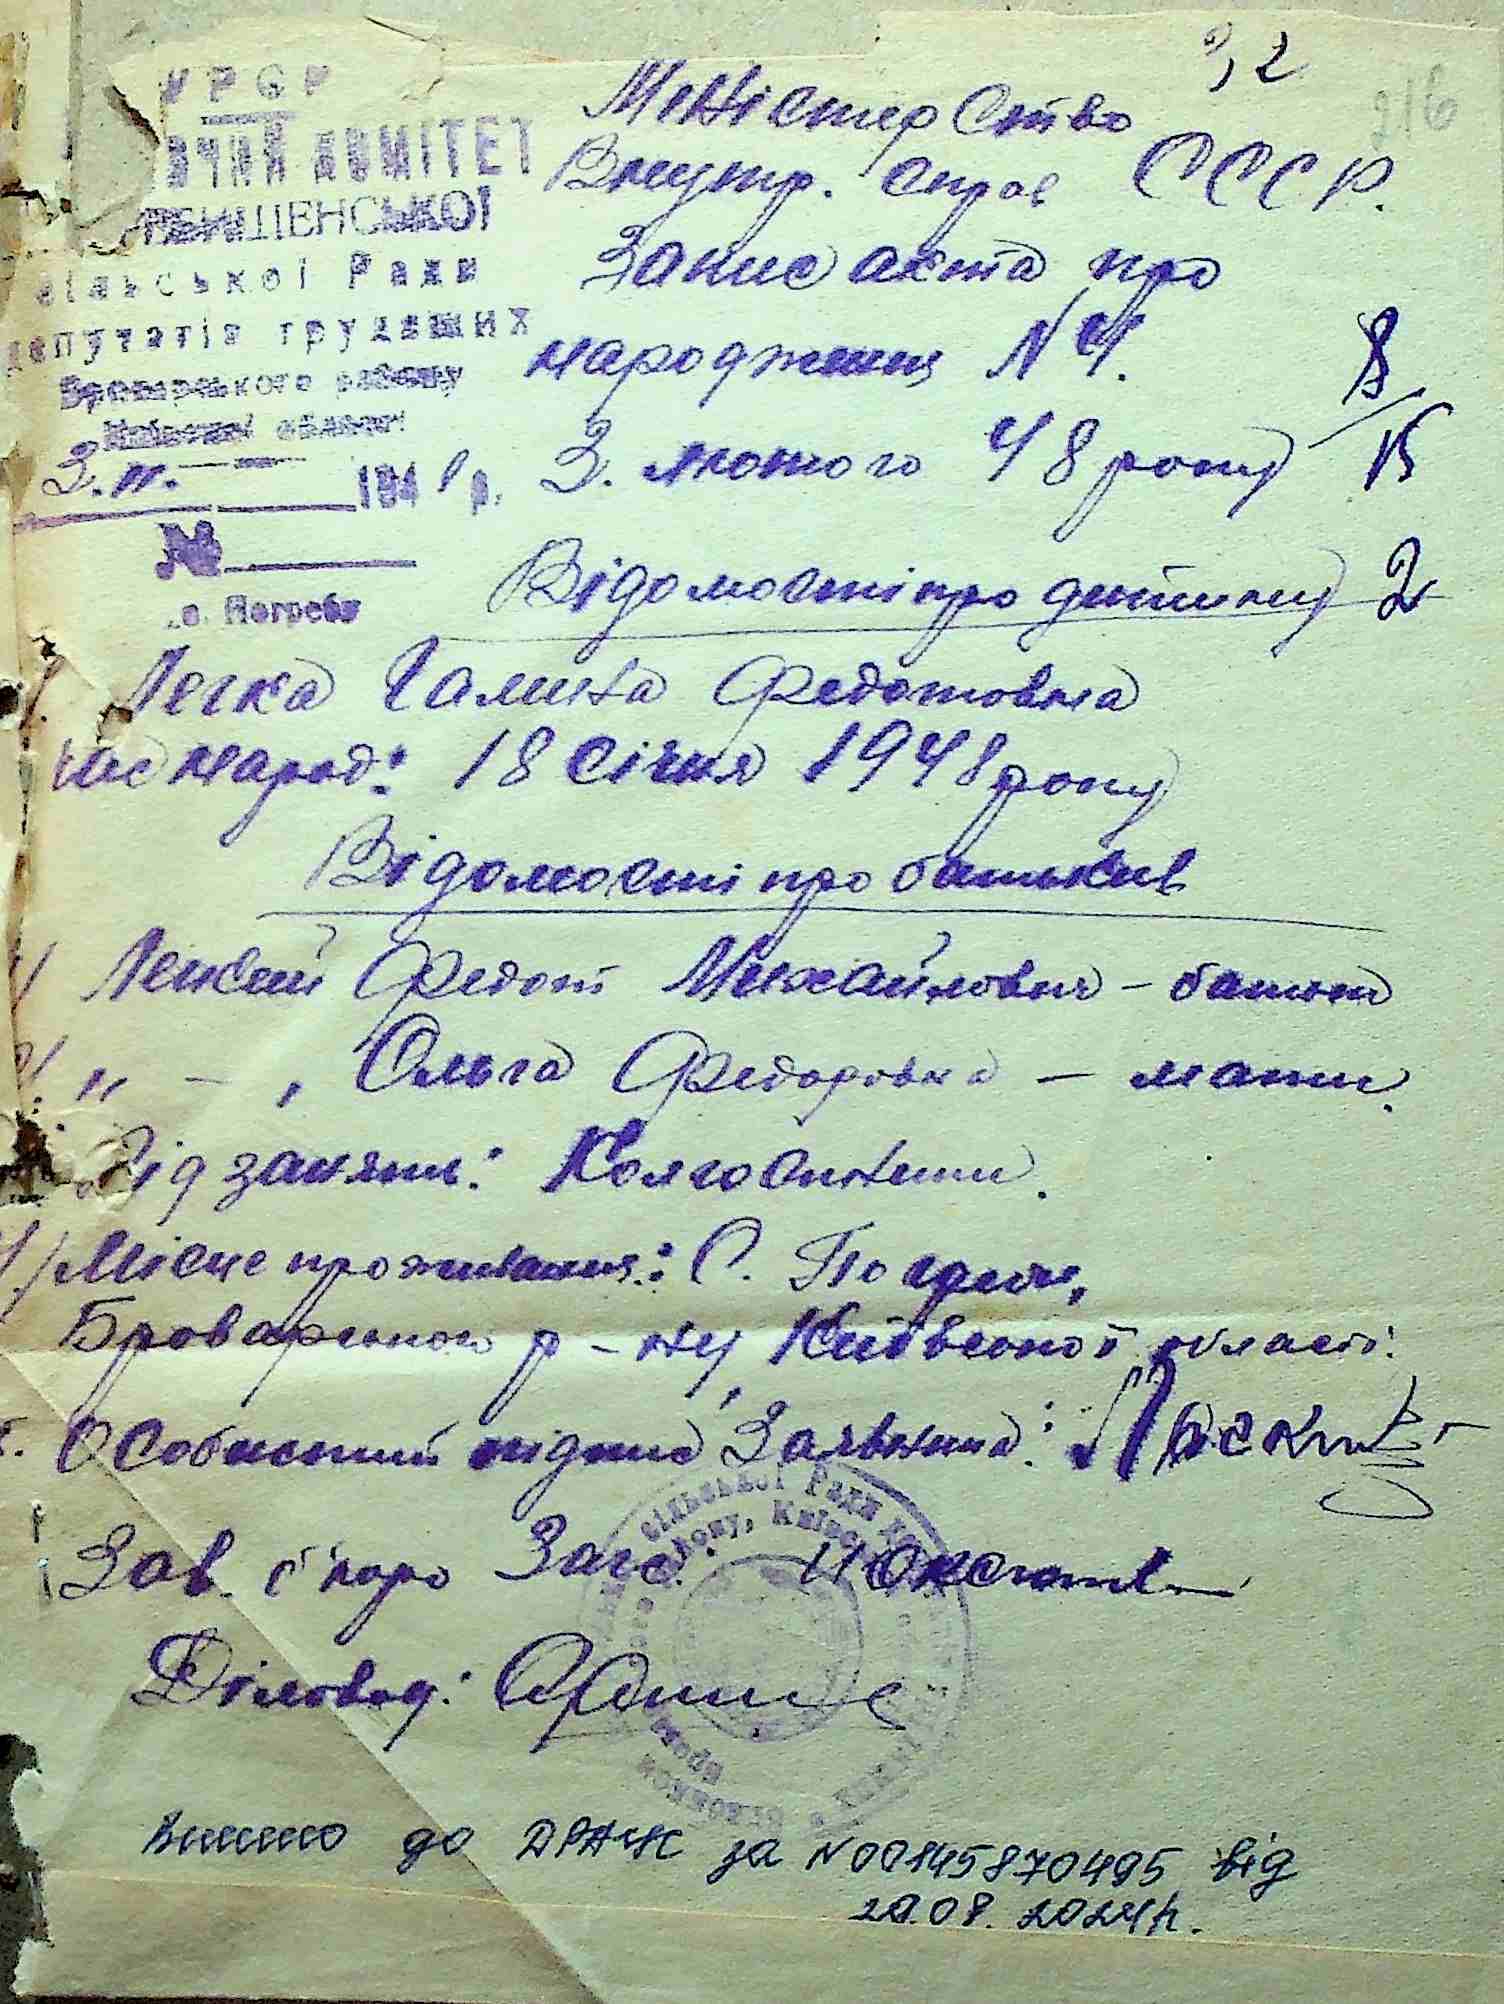 УРСР
КОМІТЕТ
сільської Ради
депутатів трудящих
Броварського району
Київської області
3.II. 194 р.
№
с. Погреби
32
216
Міністерство
Внутр. справ СССР.
Запис акта про
народження N 4.
3. лютого 48 року
Відомості про дитину 2
Легка Галина Федотовна
час народ: 18 січня 1948 року
Відомості про батьків
Легкий Федот Михайлович – батько
2/ " – , Ольга Федоровна – мати.
Рід занять: Колгоспники.
4/ Місце проживання: С. Погреби,
Броварського р-ну Київської області.
5. Особистий підпис Заявника:
Зав. бюро Загс:
Діловод:
сільської Ради
Внесено до ДРАЦС за N00145870495 від
20.08.2024р.